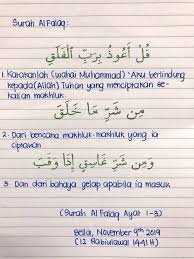 Surah Al Falaq:
قُلْ أَعُوذُ بِرَبِّ الْفَلَقِ
1. Katakanlah (wahai Muhammad) "Aku berlindung
kepada (Allah) Tuhan yang menciptakan se-
kalian makhluk.
مِن شَرِّ مَا خَلَقَ
2. Dari bencana makhluk-makhluk yang ia
ciptakan
مِن شَرِّ غَاسِقٍ إِذَا وَقَبَ
3 Dan dari bahaya gelap apabila ia masuk
(Surah Al Falaq Ayat 1-3)
Belia, November 9th 2019
(12 Rabiulawal 1441 H)